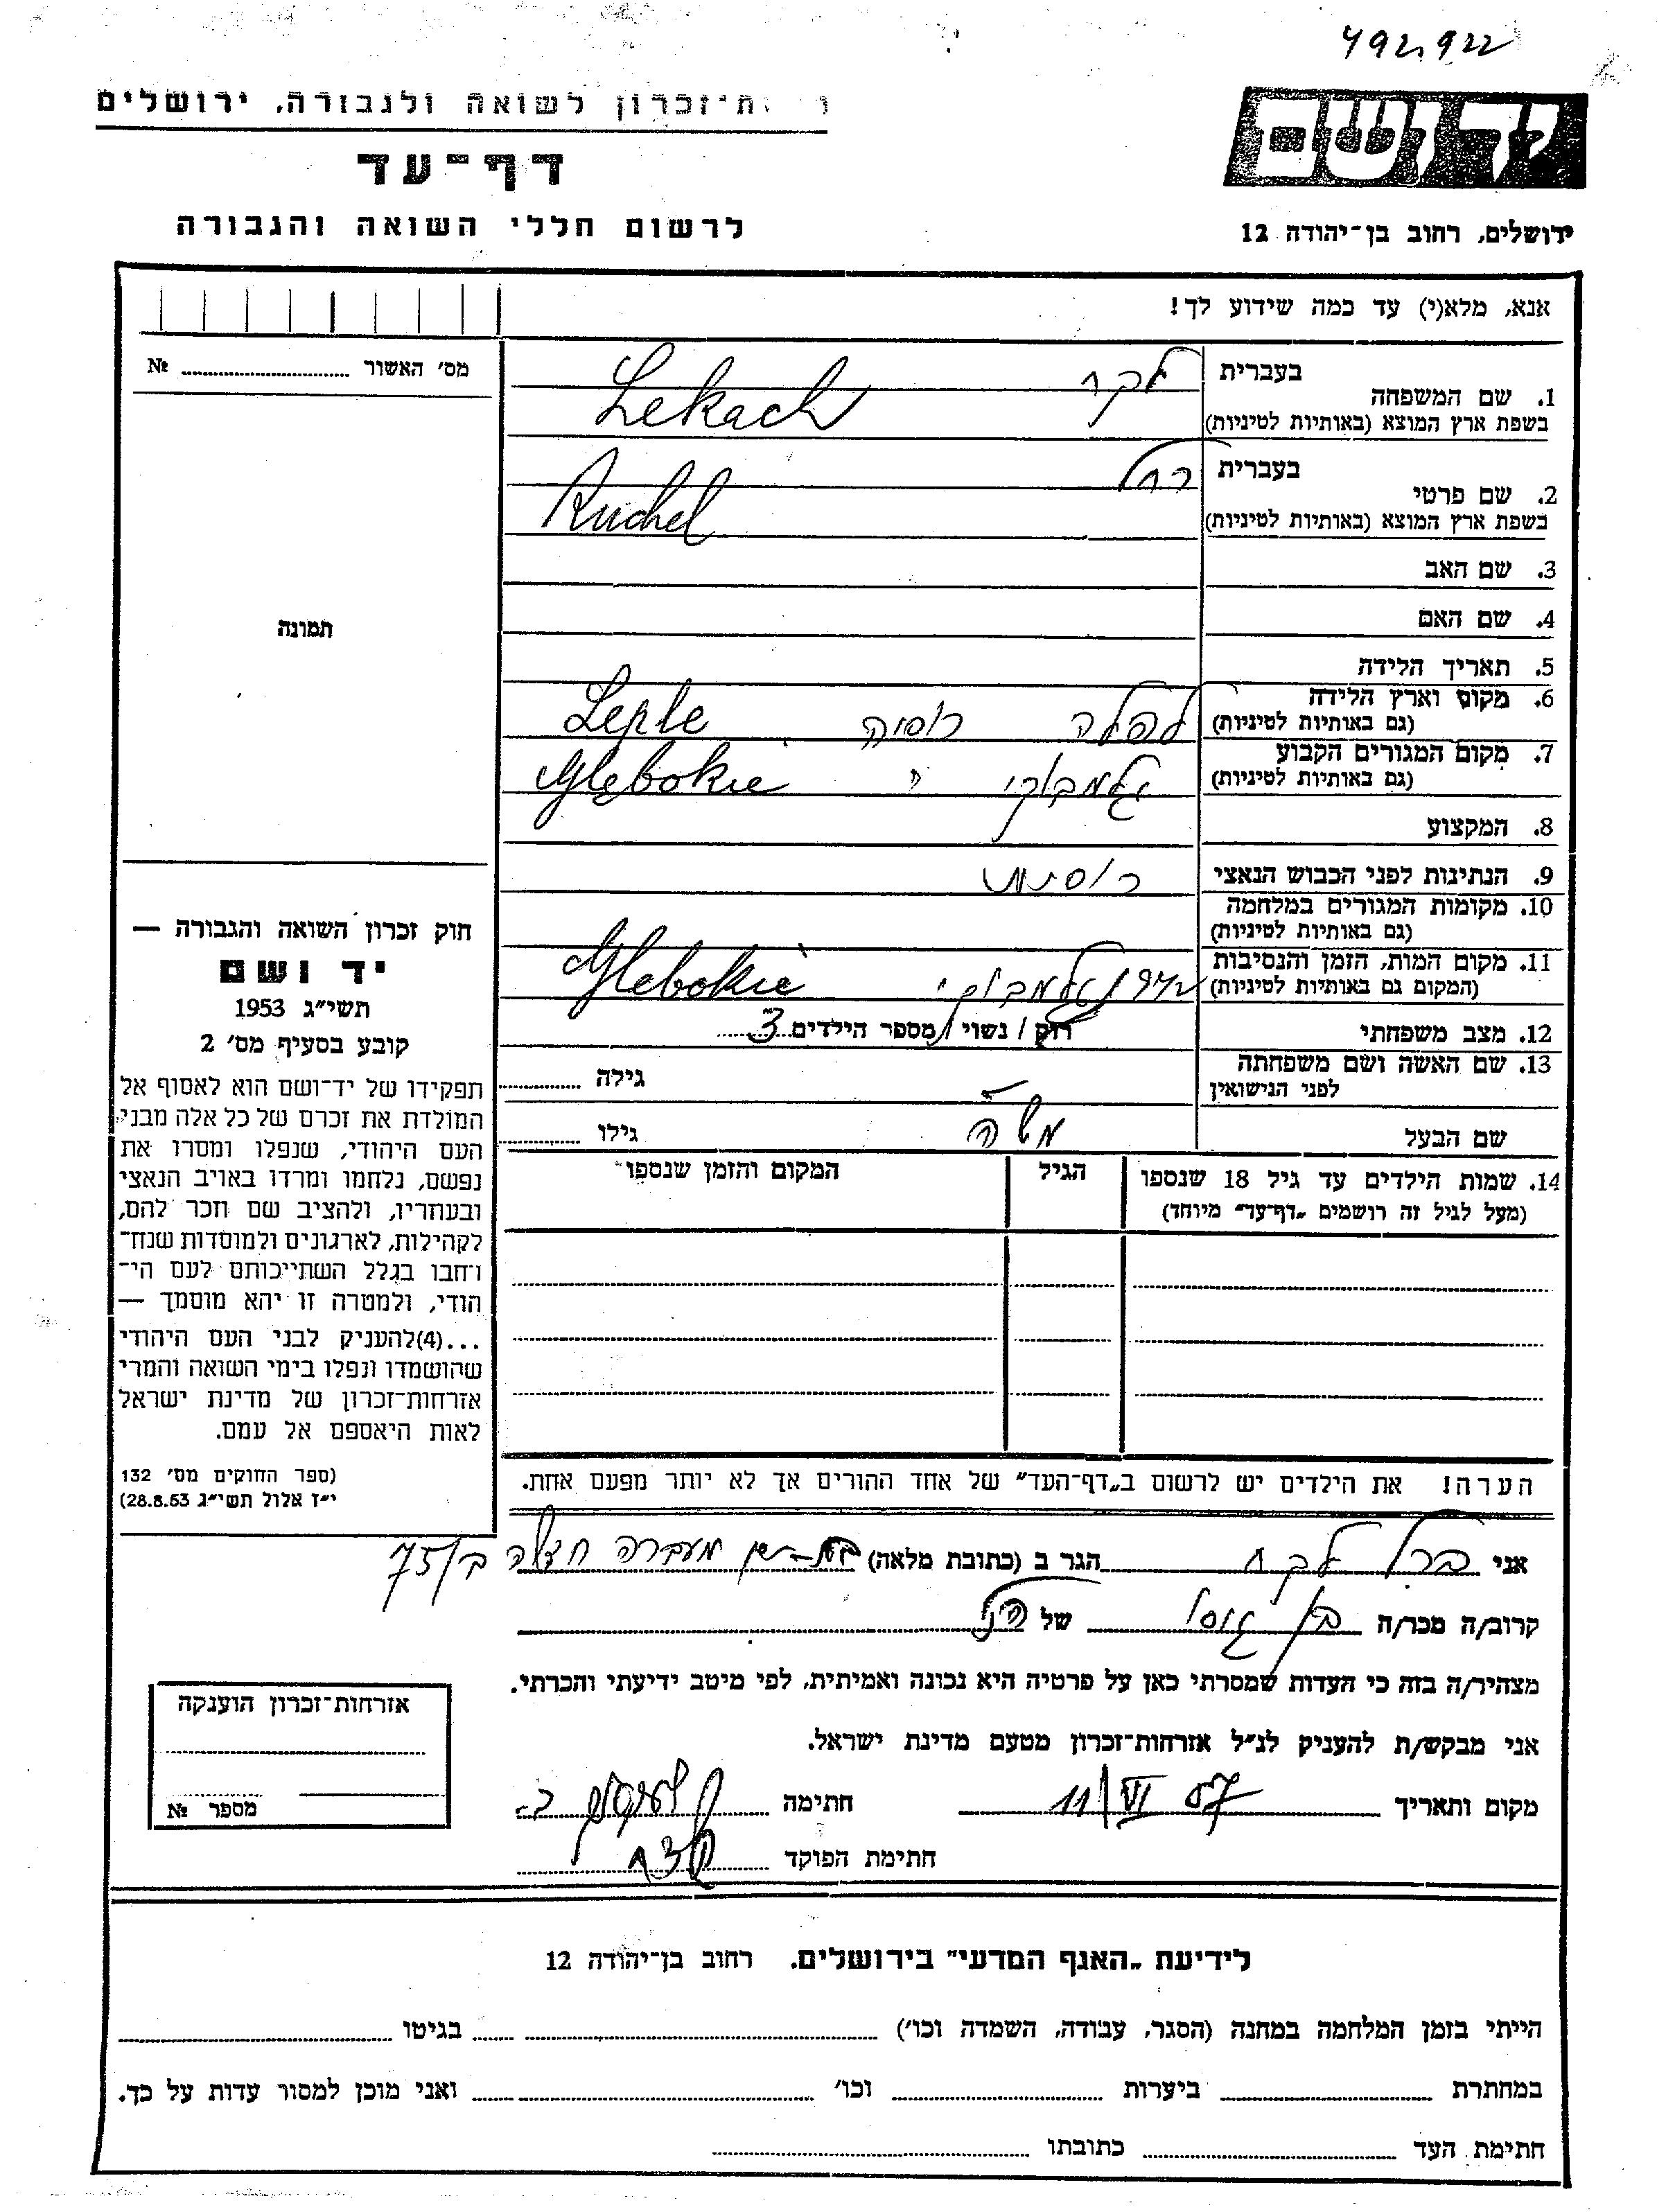 492922
ת־זכרון לשואה ולגבורה, ירושלים
ידושם
דף־עד
לרשום חללי השואה והגבורה
ירושלים, רחוב בן־יהודה 12
אנא, מלא(י) עד כמה שידוע לך!
מס׳ האשור № 
בעברית לקח
1. שם המשפחה
בשפת ארץ המוצא (באותיות לטיניות) Lekach
בעברית רחל
2. שם פרטי
בשפת ארץ המוצא (באותיות לטיניות) Ruchel
3. שם האב
4. שם האם
תמונה
5. תאריך הלידה
6. מקום וארץ הלידה
(גם באותיות לטיניות) לפלה רוסיה Leple
7. מקום המגורים הקבוע
(גם באותיות לטיניות) גלמבוקי Głębokie
8. המקצוע
9. הנתינות לפני הכבוש הנאצי רוסית
10. מקומות המגורים במלחמה
(גם באותיות לטיניות)
11. מקום המות, הזמן והנסיבות
(המקום גם באותיות לטיניות) גלמבוקי Glebokie
12. מצב משפחתי רוק / נשוי / מספר הילדים 3
13. שם האשה ושם משפחתה גילה
לפני הנישואין
שם הבעל משה גילו
14. שמות הילדים עד גיל 18 שנספו הגיל המקום והזמן שנספו
(מעל לגיל זה רושמים „דף־עד״ מיוחד)
הערה! את הילדים יש לרשום ב„דף־העד״ של אחד ההורים אך לא יותר מפעם אחת.
חוק זכרון השואה והגבורה —
יד ושם
תשי״ג 1953
קובע בסעיף מס׳ 2
תפקידו של יד־ושם הוא לאסוף אל
המולדת את זכרם של כל אלה מבני
העם היהודי, שנפלו ומסרו את
נפשם, נלחמו ומרדו באויב הנאצי
ובעוזריו, ולהציב שם וזכר להם,
לקהילות, לארגונים ולמוסדות שנח־
רחבו בגלל השתייכותם לעם הי־
הודי, ולמטרה זו יהא מוסמך —
...(4)להעניק לבני העם היהודי
שהושמדו ונפלו בימי השואה והמרי
אזרחות־זכרון של מדינת ישראל
לאות היאספם אל עמם.
(ספר החוקים מס׳ 132
י״ז אלול תשי״ג 28.8.53)
אני ברל לקח הגר ב (כתובת מלאה) בית-שאן מעברה 75
קרוב/ה מכר/ה בן של הנ״ל
מצהיר/ה בזה כי העדות שמסרתי כאן על פרטיה היא נכונה ואמיתית, לפי מיטב ידיעתי והכרתי.
אני מבקש/ת להעניק לנ״ל אזרחות־זכרון מטעם מדינת ישראל.
מקום ותאריך 11/VI 57 חתימה
חתימת הפוקד
אזרחות־זכרון הוענקה
מספר №
לידיעת „האגף המדעי״ בירושלים. רחוב בן־יהודה 12
הייתי בזמן המלחמה במחנה (הסגר, עבודה, השמדה וכו׳) בגיטו
במחתרת ביערות וכו׳ ואני מוכן למסור עדות על כך.
חתימת העד כתובתו